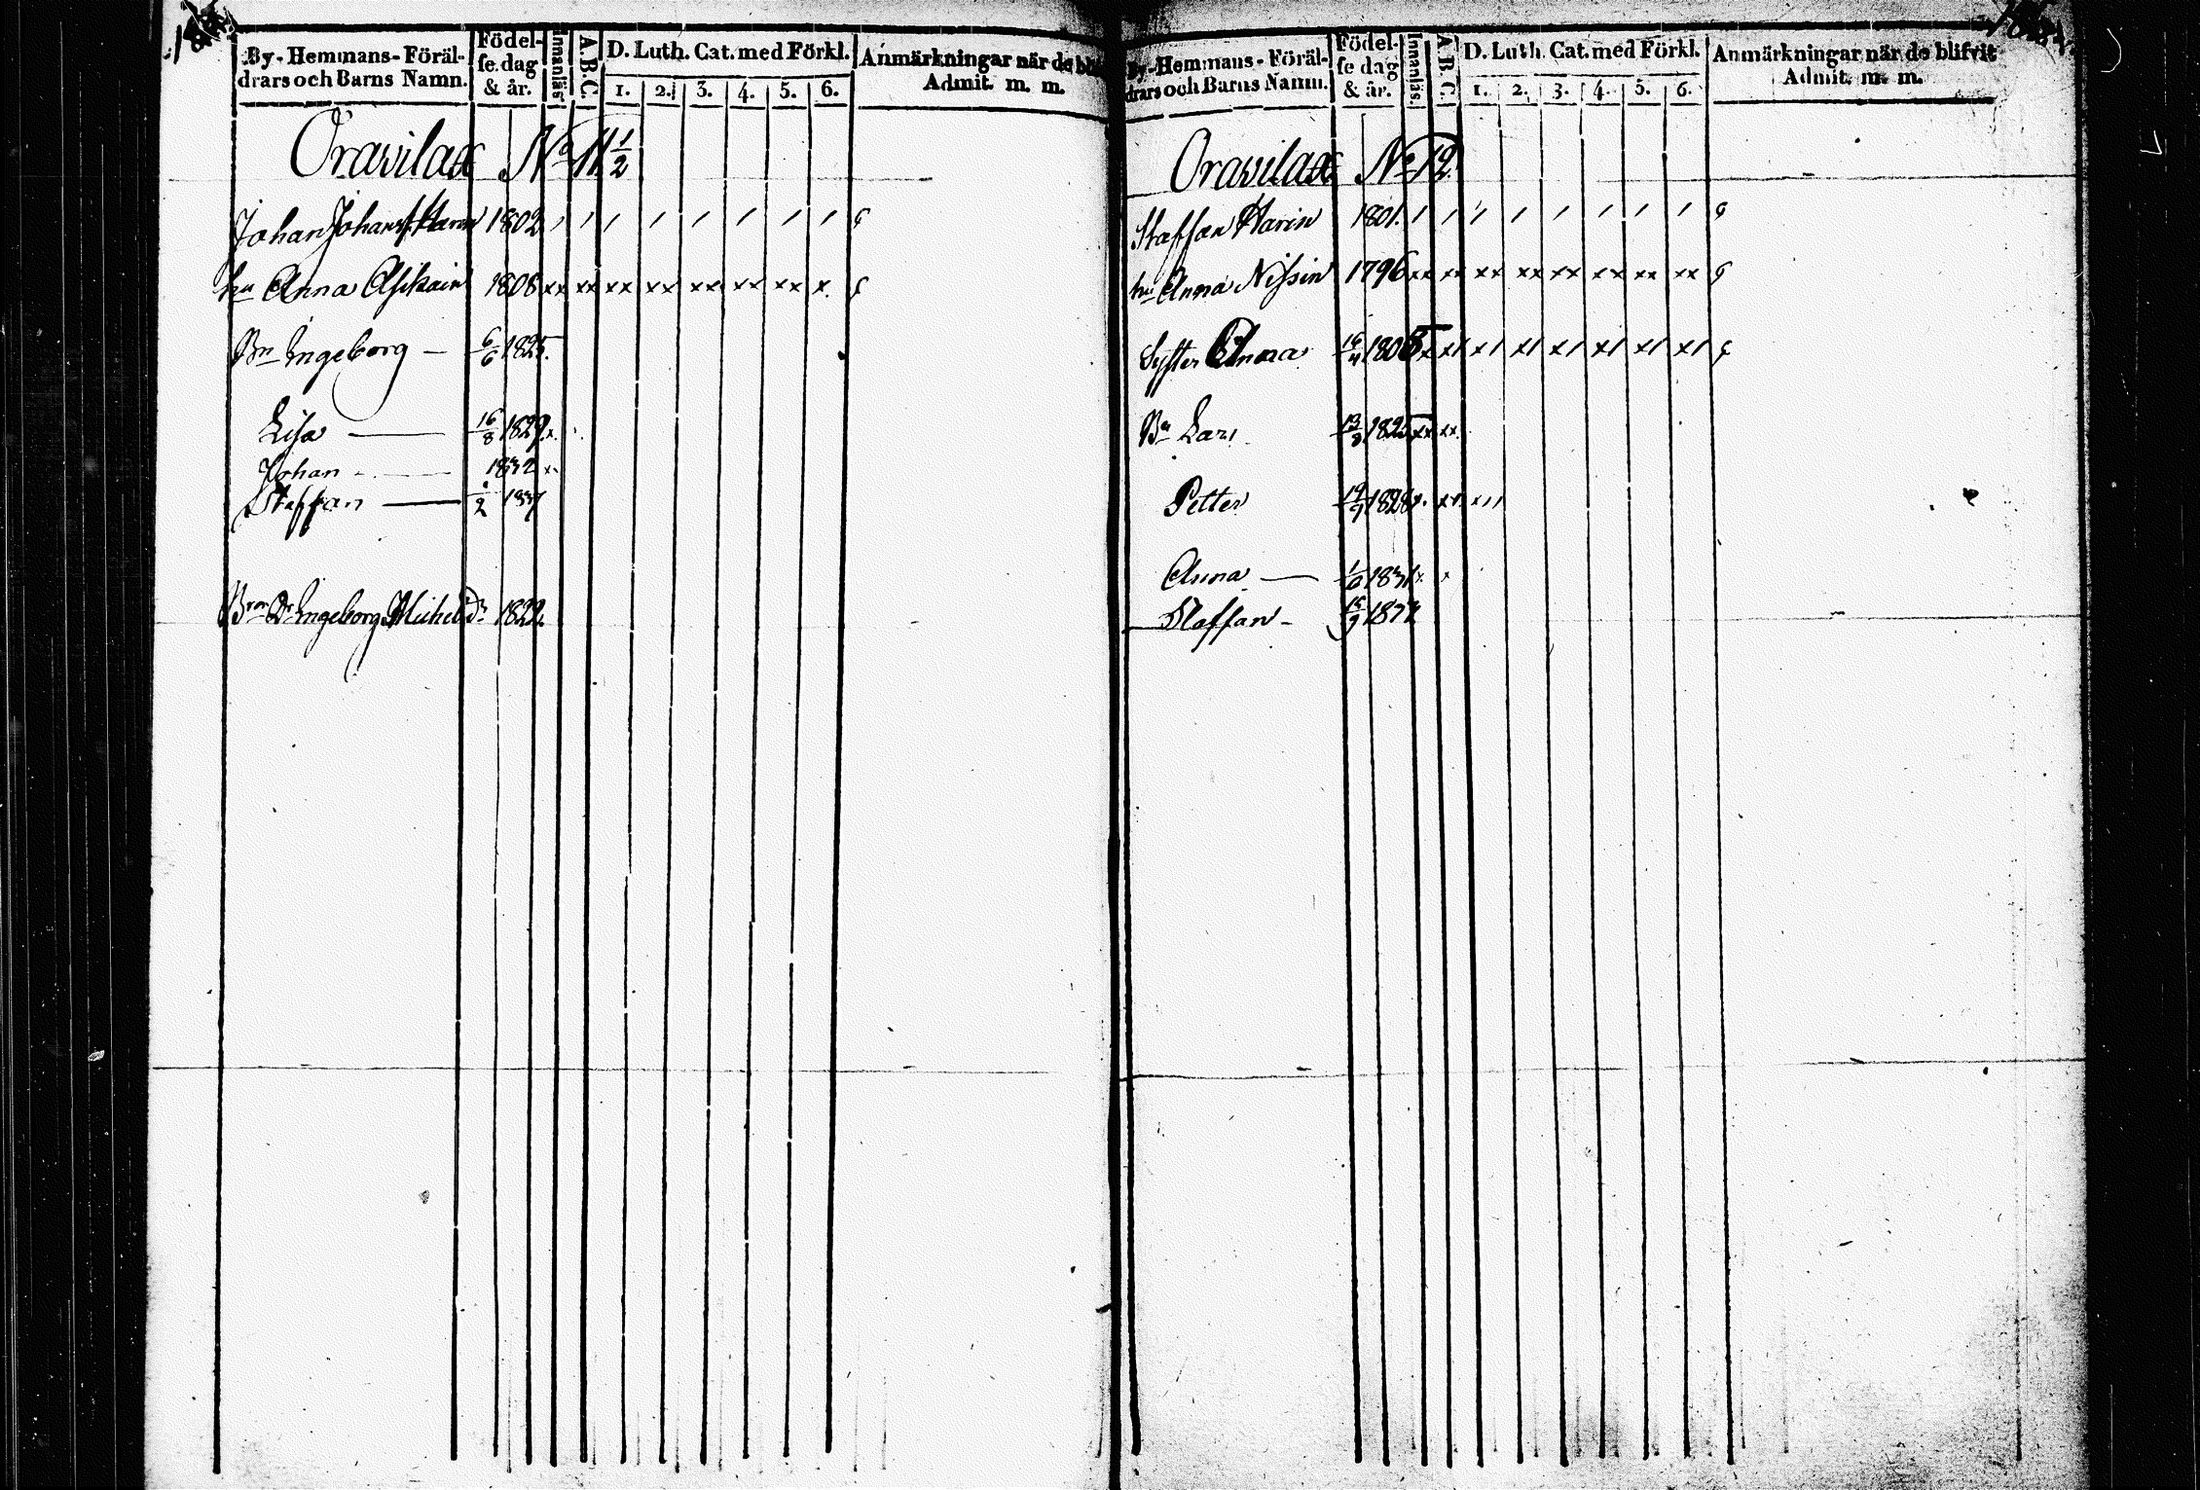 By-Hemmans-Föräl-
drars och Barns Namn.
Födel-
se dag
& år.
Innanläs.
A.B.C.
D. Luth. Cat. med Förkl.
1. 2. 3. 4. 5. 6.
Anmärkningar när de bli
Admit. m. m.
Oravilax No 11 1/2
Johan Johanss. Harin 1802 / / / / / / / /
hu Anna Asikain 1808 xx xx xx xx xx xx xx x.
Bn Ingeborg — 6/6 1825.
Lisa — 16/8 1829. x.
Johan — 1832 x
Staffan — 1/2 1837
Ingeborg Michelsdr 1822.
By-Hemmans-Föräl-
drars och Barns Namn.
Födel-
se dag
& år.
Innanläs.
A.B.C.
D. Luth. Cat. med Förkl.
1. 2. 3. 4. 5. 6.
Anmärkningar när de blifvit
Admit. m. m.
Oravilax No 12.
Staffan Harin 1801. / / / / / / / /
hu Anna Nissin 1796 xx xx xx xx xx xx xx xx
Syster Anna 16/4 1805 x x/ x/ x/ x/ x/ x/ x/
Bn Lars 1825 xx xx.
Petter 1828 x. xx. x//
Anna — 1831 x. x
Staffan –